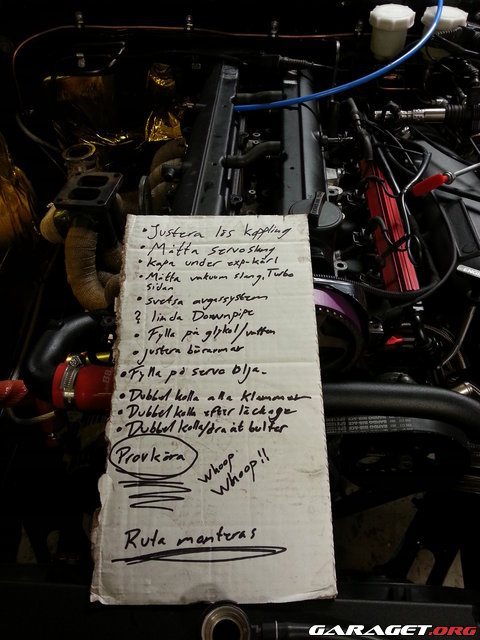 • Justera lös koppling
• Mätta servoslang
• Kapa under exp.kärl
• Mätta vakum slang, Turbo
sidan
• svetsa avgassystem
? linda Downpipe
• Fylla på glykol/vatten
• justera bärarmar
• Fylla på servo olja.
• Dubbel kolla alla klammer
• Dubbel kolla efter läckage
• Dubbel kolla/dra åt bultar
Provköra
whoop
whoop!!
Ruta monteras
GARAGET.ORG